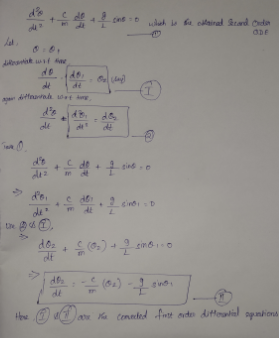 d²θ/dt² + c/m dθ/dt + g/L sinθ = 0 which is the obtained Second Order ODE
①
Let,
θ = θ₁
differentiate w.r.t time,
dθ/dt = dθ₁/dt = θ₂ (say)
I
again differentiate w.r.t time,
d²θ/dt² = d²θ₁/dt² = dθ₂/dt
②
①,
d²θ/dt² + c/m dθ/dt + g/L sinθ = 0
⇒ d²θ₁/dt² + c/m dθ₁/dt + g/L sinθ₁ = 0
② & I,
⇒ dθ₂/dt + c/m (θ₂) + g/L sinθ₁ = 0
⇒ dθ₂/dt = -c/m (θ₂) - g/L sinθ₁
Here I & II are the converted first order differential equations